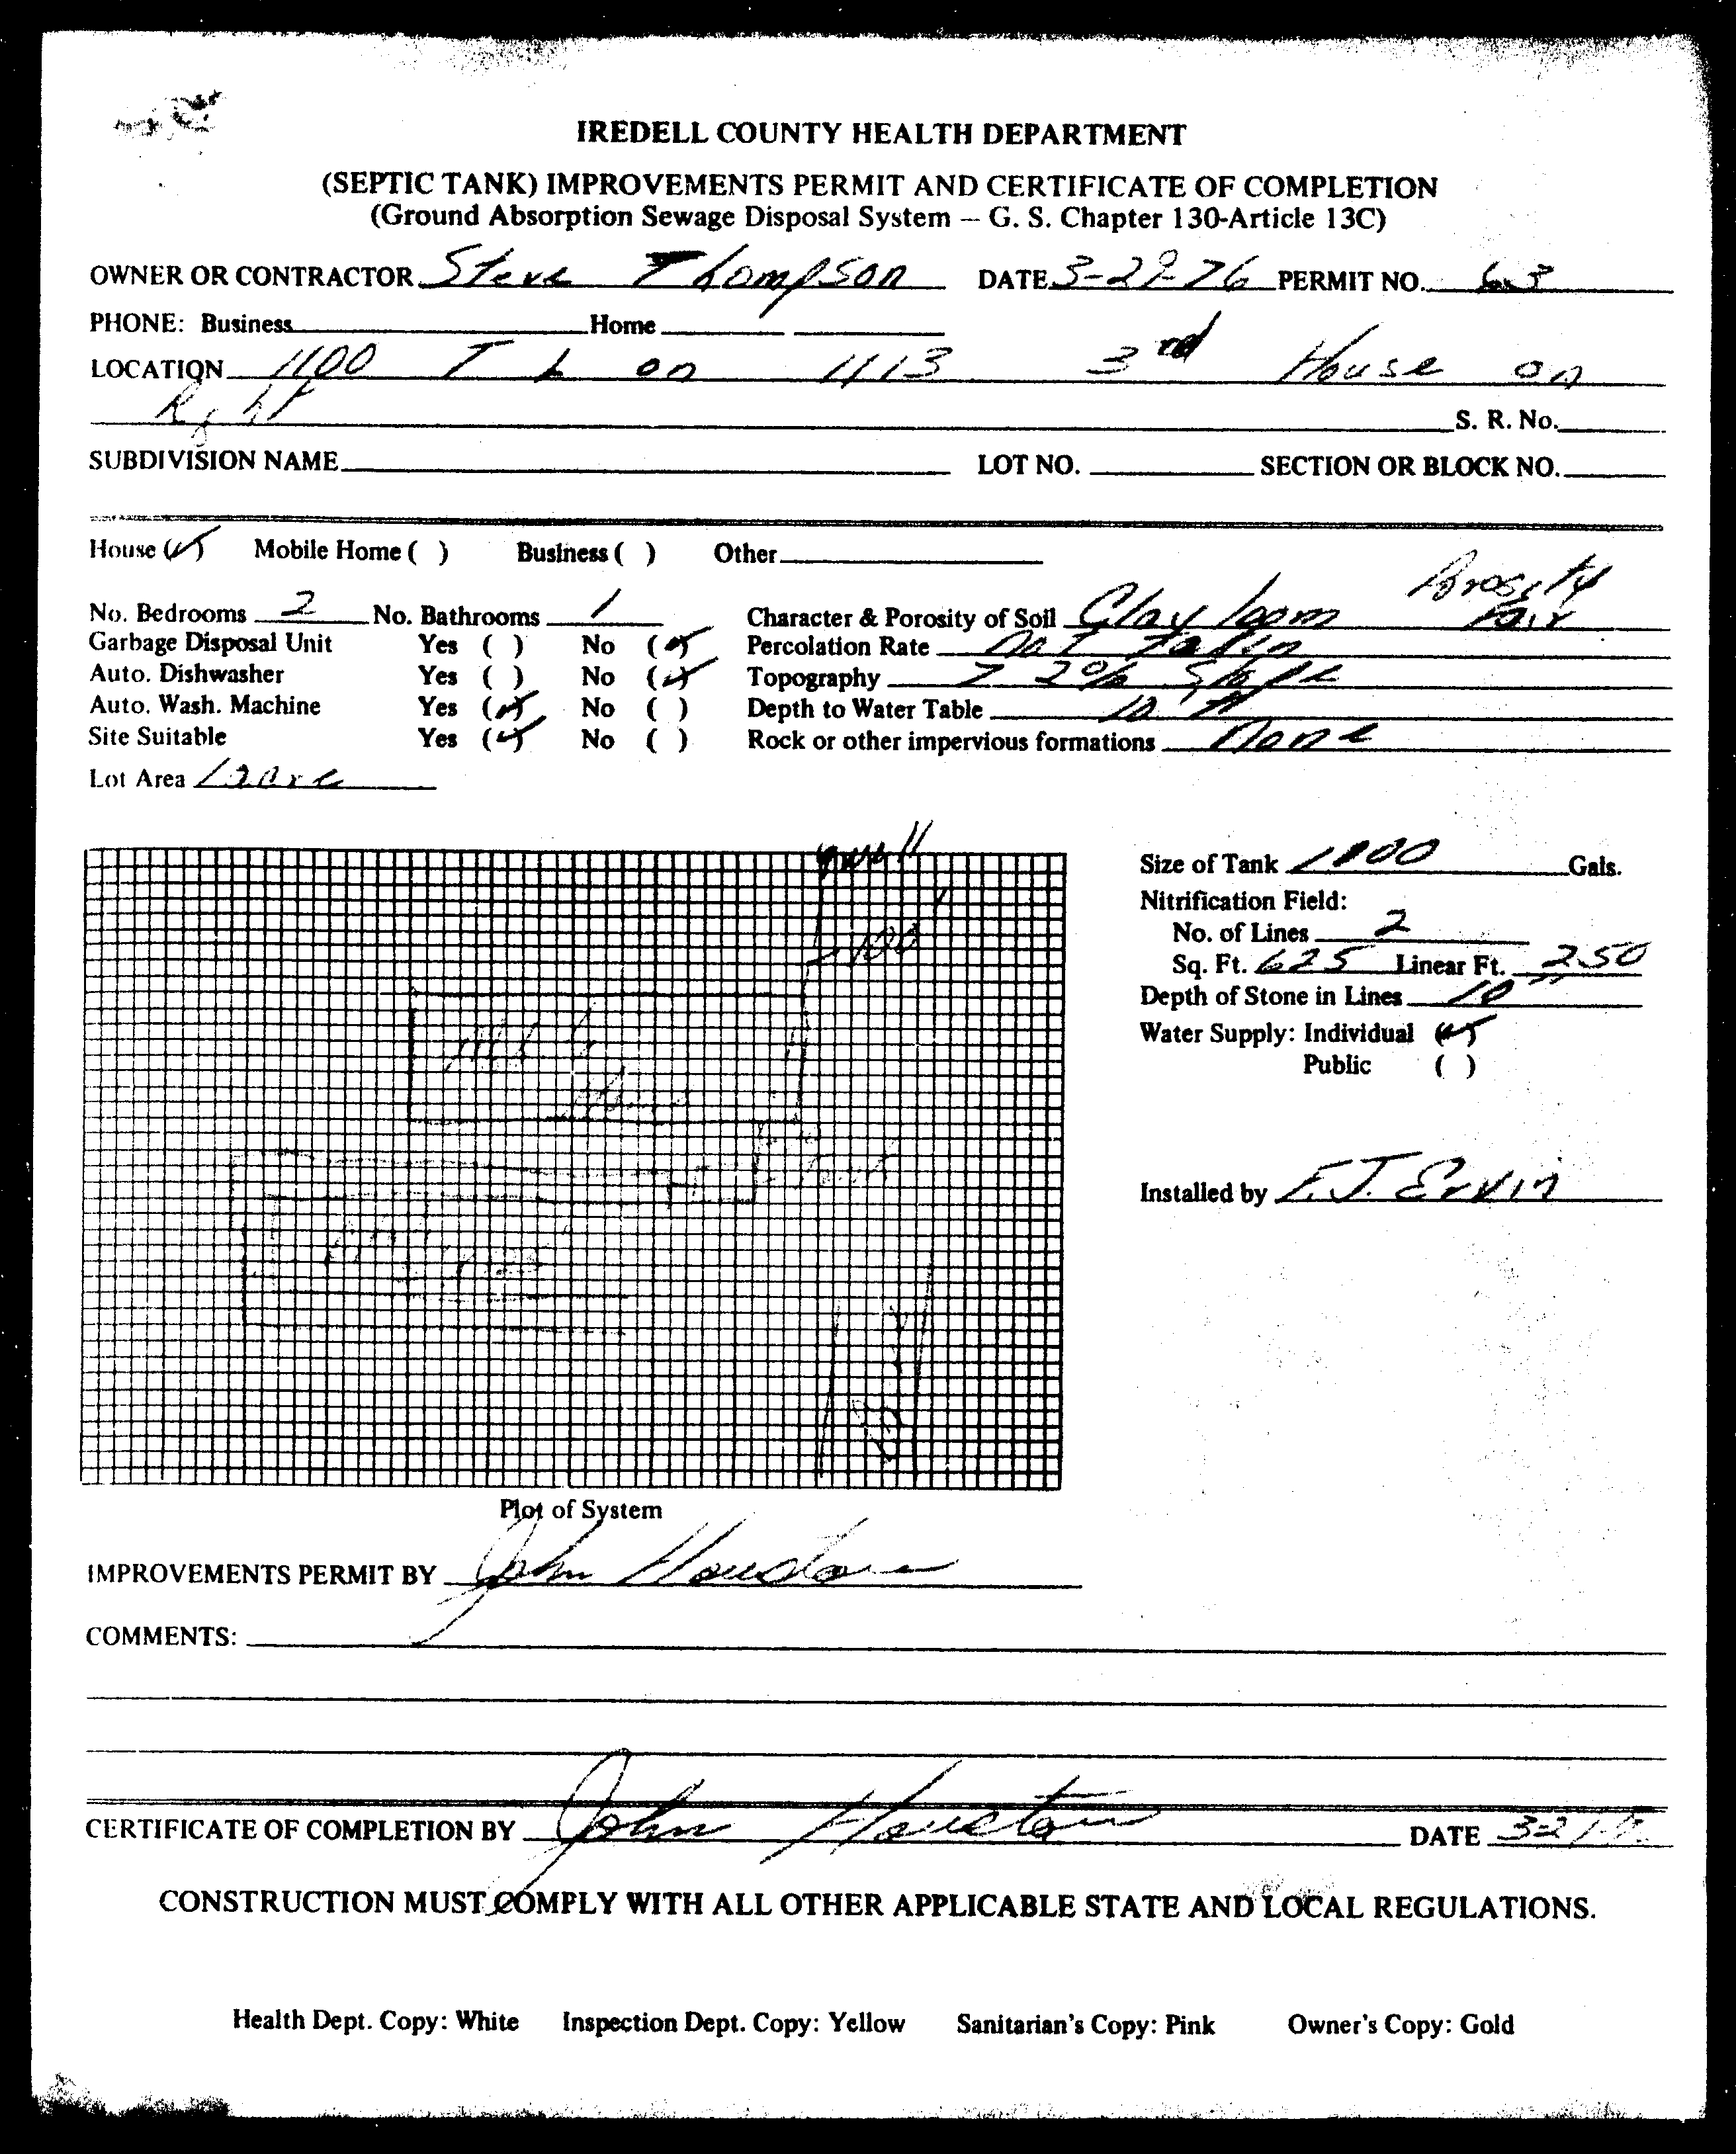 IREDELL COUNTY HEALTH DEPARTMENT
(SEPTIC TANK) IMPROVEMENTS PERMIT AND CERTIFICATE OF COMPLETION
(Ground Absorption Sewage Disposal System — G. S. Chapter 130-Article 13C)
OWNER OR CONTRACTOR Steve Thompson DATE 3-29-76 PERMIT NO. 63
PHONE: Business Home
LOCATION 1100 T L on 1113 3rd House on
Right S. R. No.
SUBDIVISION NAME LOT NO. SECTION OR BLOCK NO.
House (✓) Mobile Home ( ) Business ( ) Other
No. Bedrooms 2 No. Bathrooms 1 Character & Porosity of Soil Clay loom Porosity Fair
Garbage Disposal Unit Yes ( ) No (✓) Percolation Rate not Takin
Auto. Dishwasher Yes ( ) No (✓) Topography 2% Slope
Auto. Wash. Machine Yes (✓) No ( ) Depth to Water Table 10 ft
Site Suitable Yes (✓) No ( ) Rock or other impervious formations None
Lot Area
well
100'
Size of Tank 1000 Gals.
Nitrification Field:
No. of Lines 2
Sq. Ft. 625 Linear Ft. 250
Depth of Stone in Lines 10"
Water Supply: Individual (✓)
Public ( )
Installed by F.J. Ervin
Plot of System
IMPROVEMENTS PERMIT BY John Houston
COMMENTS:
CERTIFICATE OF COMPLETION BY John Houston DATE
CONSTRUCTION MUST COMPLY WITH ALL OTHER APPLICABLE STATE AND LOCAL REGULATIONS.
Health Dept. Copy: White Inspection Dept. Copy: Yellow Sanitarian's Copy: Pink Owner's Copy: Gold